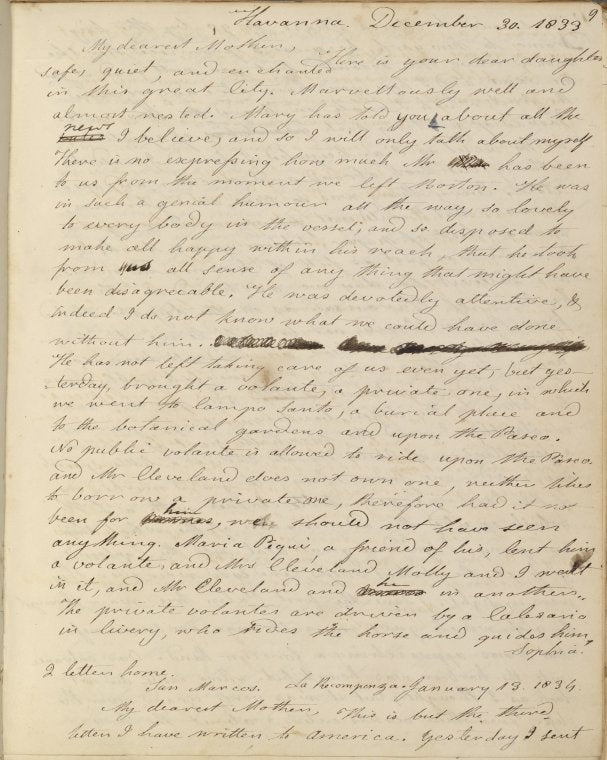 9
Havanna. December 30. 1833
My dearest Mother, Here is your dear daughter
safe, quiet, and enchanted
in this great City. Marvellously well and
almost rested. Mary has told you about all the
news I believe, and so I will only talk about myself
There is no expressing how much Mr has been
to us from the moment we left Boston. He was
in such a genial humour all the way, so lovely
to every body in the vessel, and so disposed to
make all happy within his reach, that he took
from all sense of any thing that might have
been disagreeable. He was devotedly attentive, &
indeed I do not know what we could have done
without him.
He has not left taking care of us even yet, but yes-
terday, brought a volante, a private one, in which
we went to Campo Santo, a burial place and
to the botanical gardens and upon the Paseo.
No public volante is allowed to ride upon the Paseo
and Mr Cleveland does not own one, neither likes
to borrow a private one, therefore had it not
been for him, we should not have seen
anything. Maria Pequi a friend of his, lent him
a volante, and Mrs Cleveland Molly and I went
in it, and Mr Cleveland and he in another.
The private volantes are driven by a Calesario
in livery, who rides the horse and guides him.
Sophia.
2 letter home.
San Marcos. La Recompenza. January 13. 1834.
My dearest Mother, This is but the third
letter I have written to America. Yesterday I sent